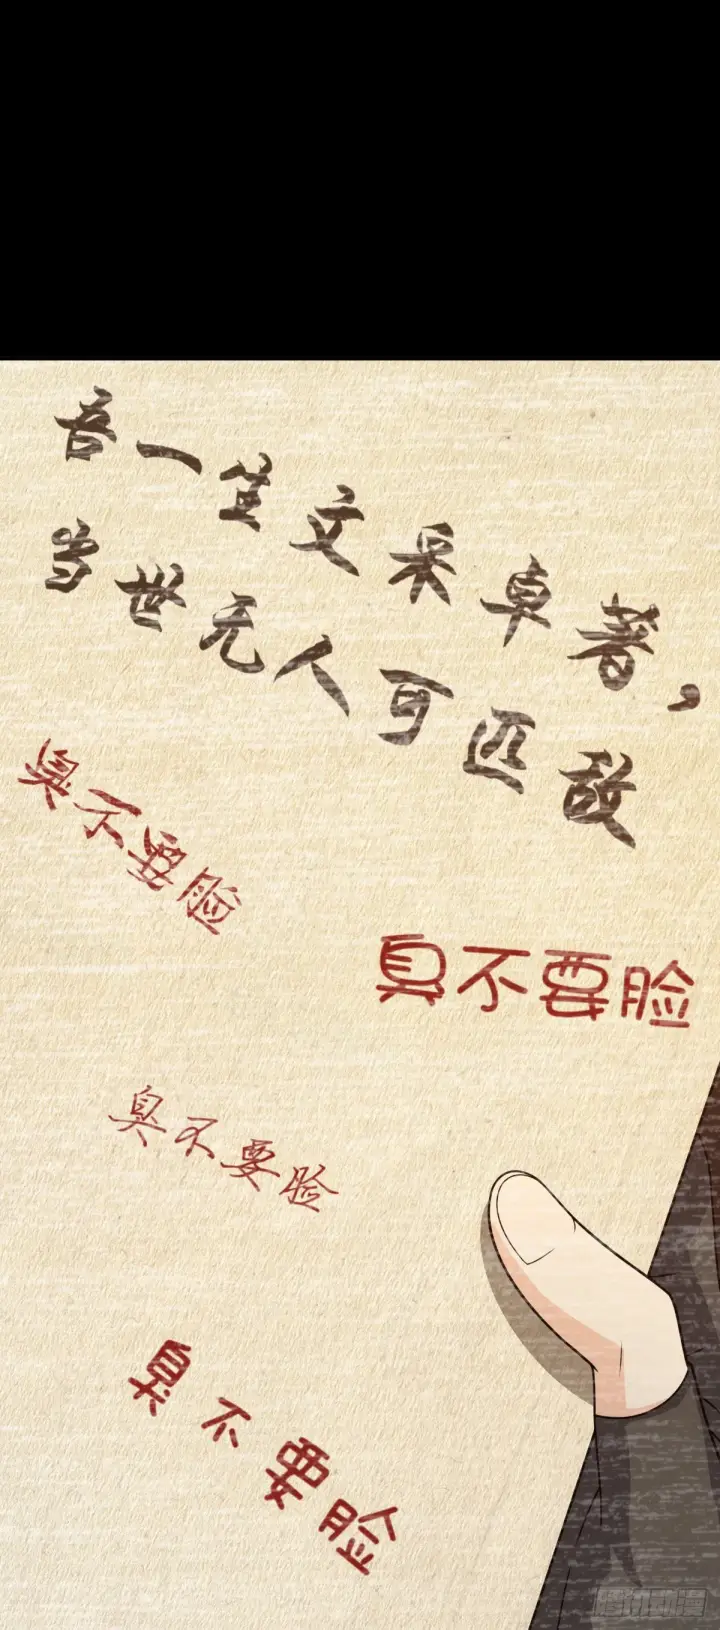 吾一生文采卓著，
当世无人可匹敌
臭不要脸
臭不要脸
臭不要脸
臭不要脸